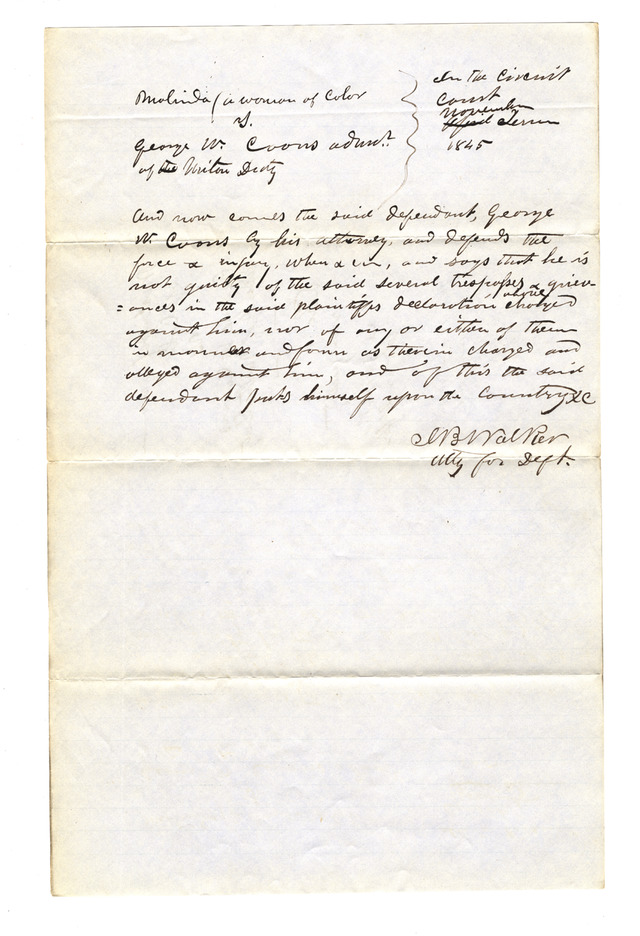 Malinda (a woman of color
vs.
George W. Coons admr.
of
In the Circuit
Court
November
April Term
1845
And now comes the said defendant, George
W. Coons by his attorney, and defends the
force & injury, when &c, and says that he is
not guilty of the said several trespasses & griev-
=ances in the said plaintiffs declaration above charged
against him, nor of any or either of them
in manner and form as therein charged and
alleged against him, and of this the said
defendant puts himself upon the Country &C
Atty for Deft.